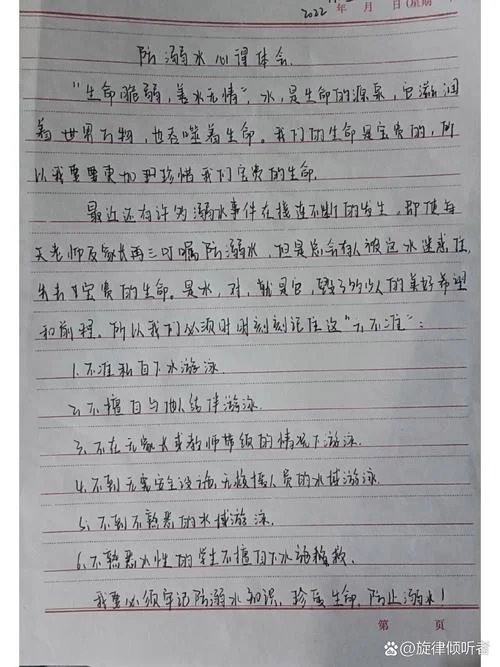 2022 年 月 日(星期
防溺水心得体会.
"生命脆弱,善水无情",水,是生命的源泉,它滋润
着世界万物,也吞噬着生命。我们的生命是宝贵的,所
以我要更加珍惜我们宝贵的生命.
最近还有许多溺水事件在接连不断的发生,即使每
天老师及家长再三叮嘱防溺水,但是总会有人被这水迷惑住,
失去了宝贵的生命。是水,对,就是它,毁了多少人的美好希望
和前程。所以我们必须时时刻刻记住这"六不准":
1.不准私自下水游泳.
2.不擅自与他人结伴游泳.
3.不在无家长或教师带领的情况下游泳.
4.不到无安全设施、无救援人员的水域游泳.
5.不到不熟悉的水域游泳.
6.不熟悉水性的学生不擅自下水施救.
我要必须牢记防溺水知识,珍爱生命,防止溺水!
第 页
@旋律倾听者